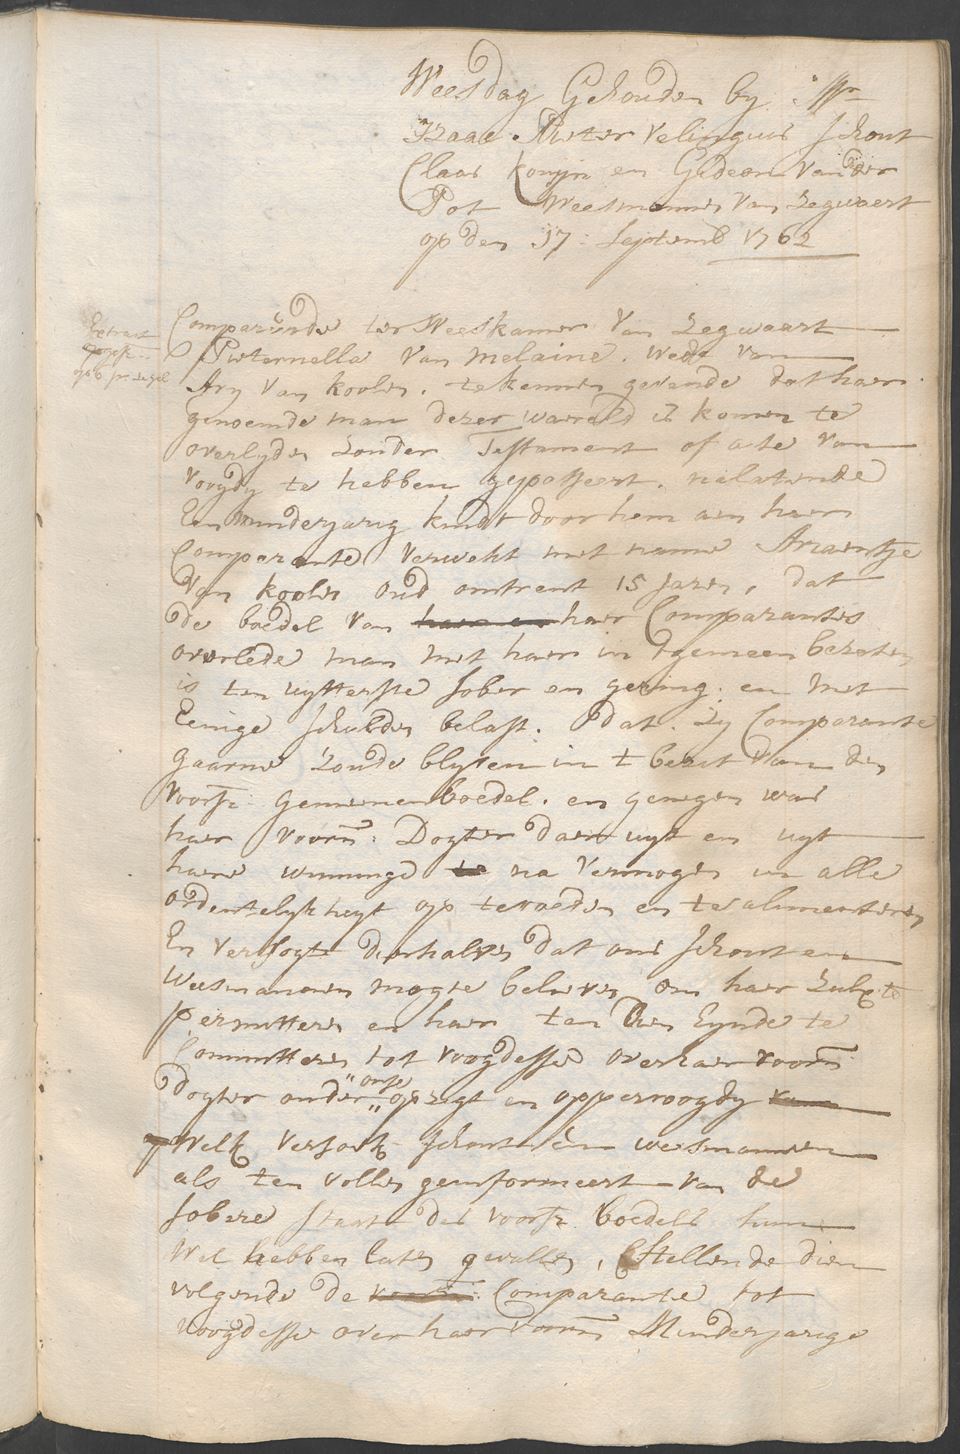 Weesdag Gehouden by: Mr
Izaac Pieter Velingius schout
Claas Konyn en Gedeon vander
Pot Weesmannen van Zegwaert
op den 17: Septemb 1762
Extract
op 6 st. zegel
Compareerde ter Weeskamer van Zegwaert
Pieternella van Melaine. wede van
Ary van Koolen. te kennen gevende dat haer
genoemde man dezer waereld is komen te
overlyden zonder Testament of acte van
voogdy te hebben gepasseert. nalatende
Een minderjarig kindt door hem aen haer
Comparante verwekt met name Ariaentje
van Koolen oud omtrent 15 Jaren, dat
de boedel van haer Comparantes
overlede man met haer in tgemeen bezeten
is ten uytterste sober en gering. en met
Eenige schulden belast. dat zy Comparante
gaarne zoude blyven in t bezit van den
voorsz: gemeenen boedel. en genegen was
haer voorn: Dogter daer uyt en uyt
haere winninge na vermogen in alle
ordentelykheyt op te voeden en te alimenteren
En versogte derhalven dat ons schout en
Weesmannen mogte believen om haer zulx te
permitteren en haer ten dien Eynde te
Committeren tot voogdesse over haer voorn
dogter onder onse opzigt en oppervoogdy
Welk versoek schout en weesmannen
als ten vollen geinformeert van de
sobere staet des voorsz boedels hun
Wel hebben laten gevallen, Stellende dien
volgende de Comparante tot
voogdesse over haer voorn Minderjarige